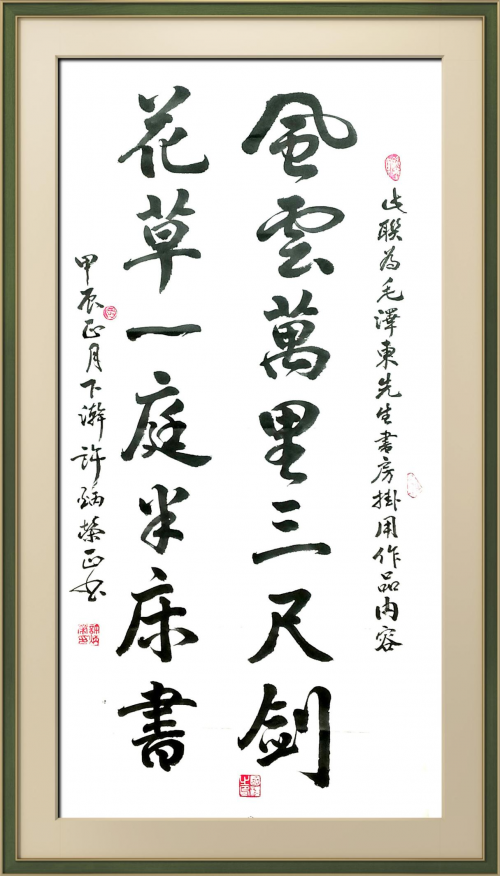 此聯為毛澤東先生書房掛用作品内容
風雲萬里三尺劍
花草一庭半床書
甲辰正月下澣許炳榮正书